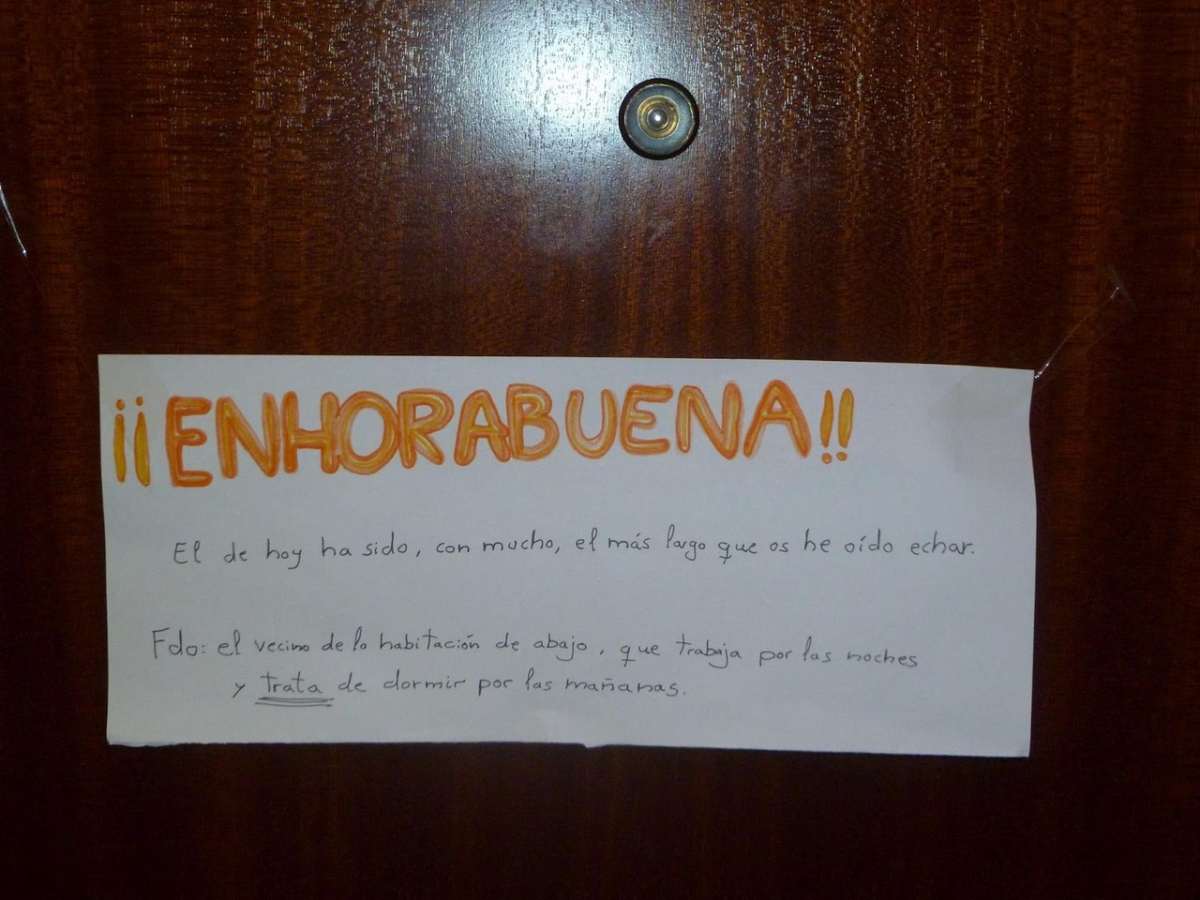 ¡¡ENHORABUENA!!
El de hoy ha sido, con mucho, el más largo que os he oído echar.
Fdo: el vecino de la habitación de abajo, que trabaja por las noches
y trata de dormir por las mañanas.